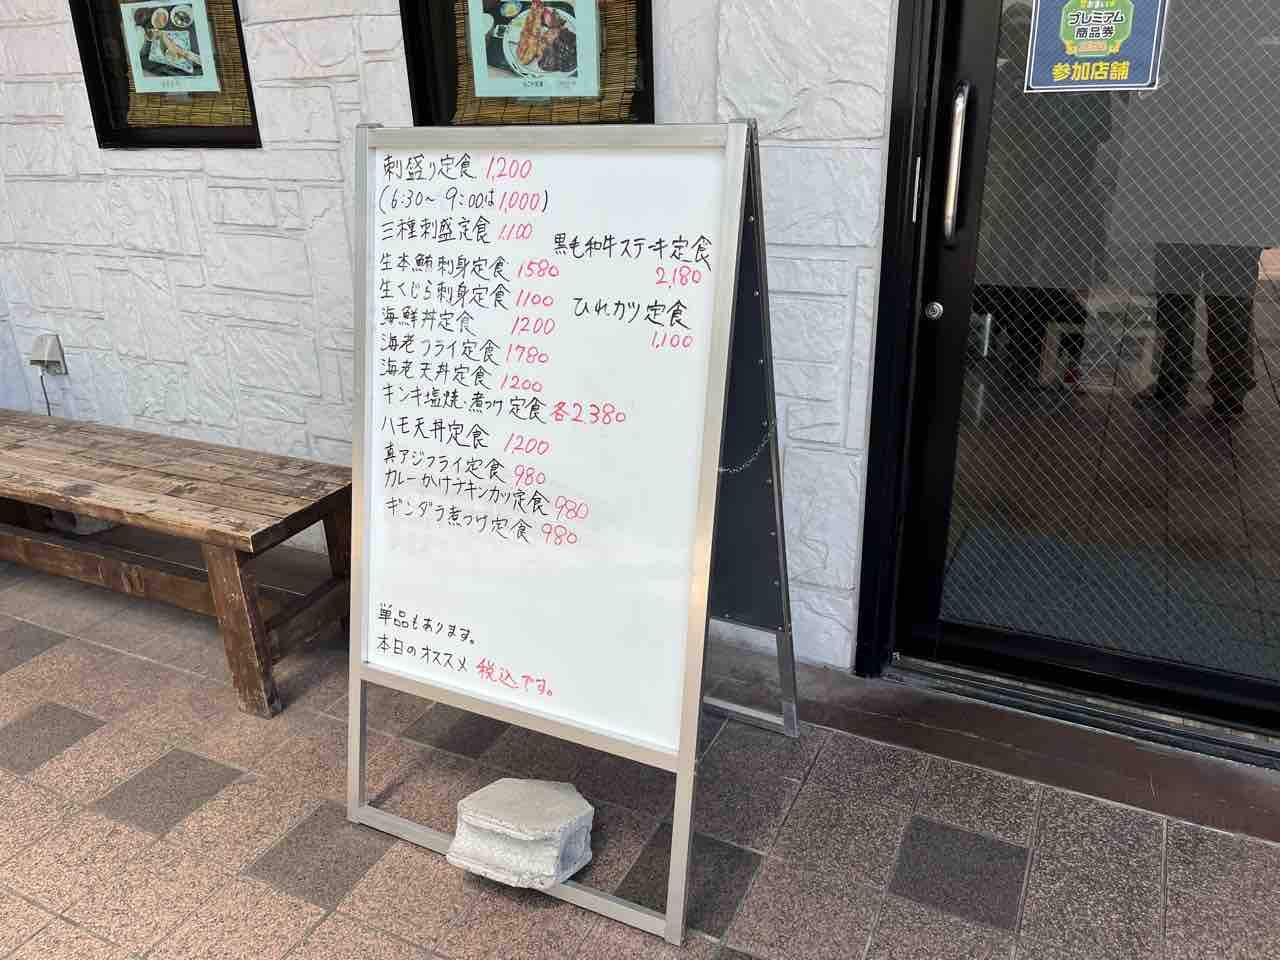 刺盛り定食 1,200
(6:30～9:00は1,000)
三種刺盛定食 1,100
生本鮪刺身定食 1580
生くじら刺身定食 1100
海鮮丼定食 1200
海老フライ定食 1780
海老天丼定食 1200
キンキ塩焼・煮つけ定食 各2,380
ハモ天丼定食 1,200
真アジフライ定食 980
カレーかけチキンカツ定食 980
ギンダラ煮つけ定食 980
黒毛和牛ステーキ定食
2,180
ひれカツ定食
1,100
単品もあります。
本日のオススメ 税込です。
プレミアム
商品券
参加店舗